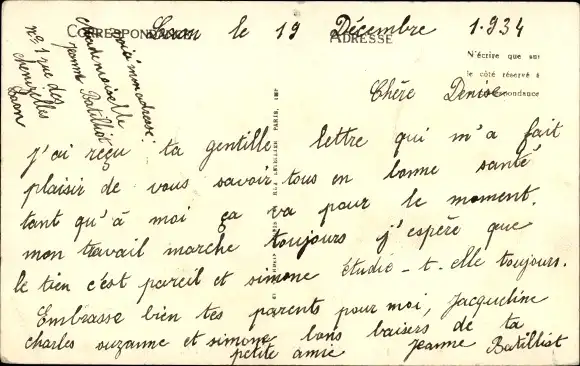 CORRESPONDANCE
ADRESSE
Laon le 19 Décembre 1.934
N'écrire que sur
le côté réservé à
voici mon adresse:
Mademoiselle
Jeanne Batilliot
n° 1 rue des
chenizelles
Laon
Chère Denise
j'ai reçu ta gentille lettre qui m'a fait
plaisir de vous savoir tous en bonne santé
tant qu'à moi ça va pour le moment.
mon travail marche toujours j'espère que
le tien c'est pareil et simone étudie-t-elle toujours.
Embrasse bien tes parents pour moi, Jacqueline
charles suzanne et simone bons baisers de ta
petite amie Jeanne Batilliot